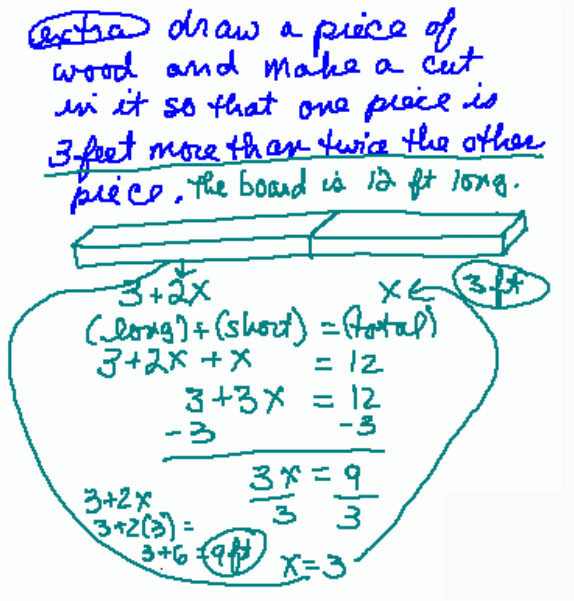 extra draw a piece of
wood and make a cut
in it so that one piece is
3 feet more than twice the other
piece. The board is 12 ft long.
3+2x x 3 ft
(long)+(short) = (total)
3+2x + x = 12
3+3x = 12
-3 -3
3x = 9
3 3
3+2x
3+2(3) =
3+6 = 9ft
x=3